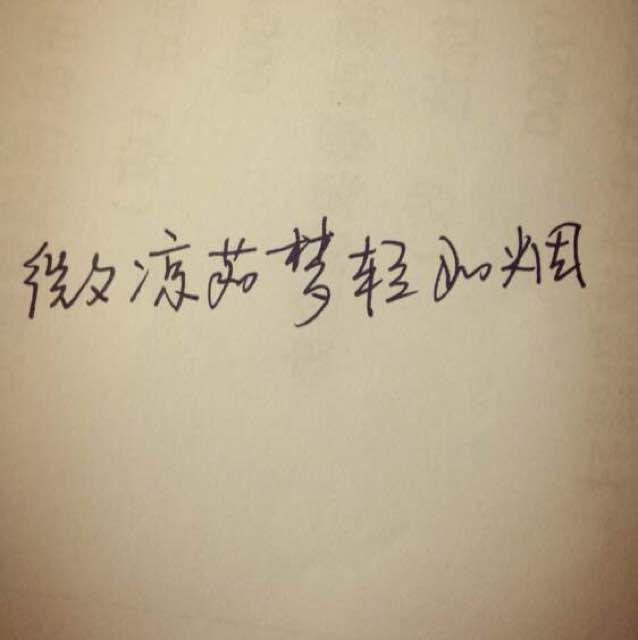 微凉茹梦轻如烟